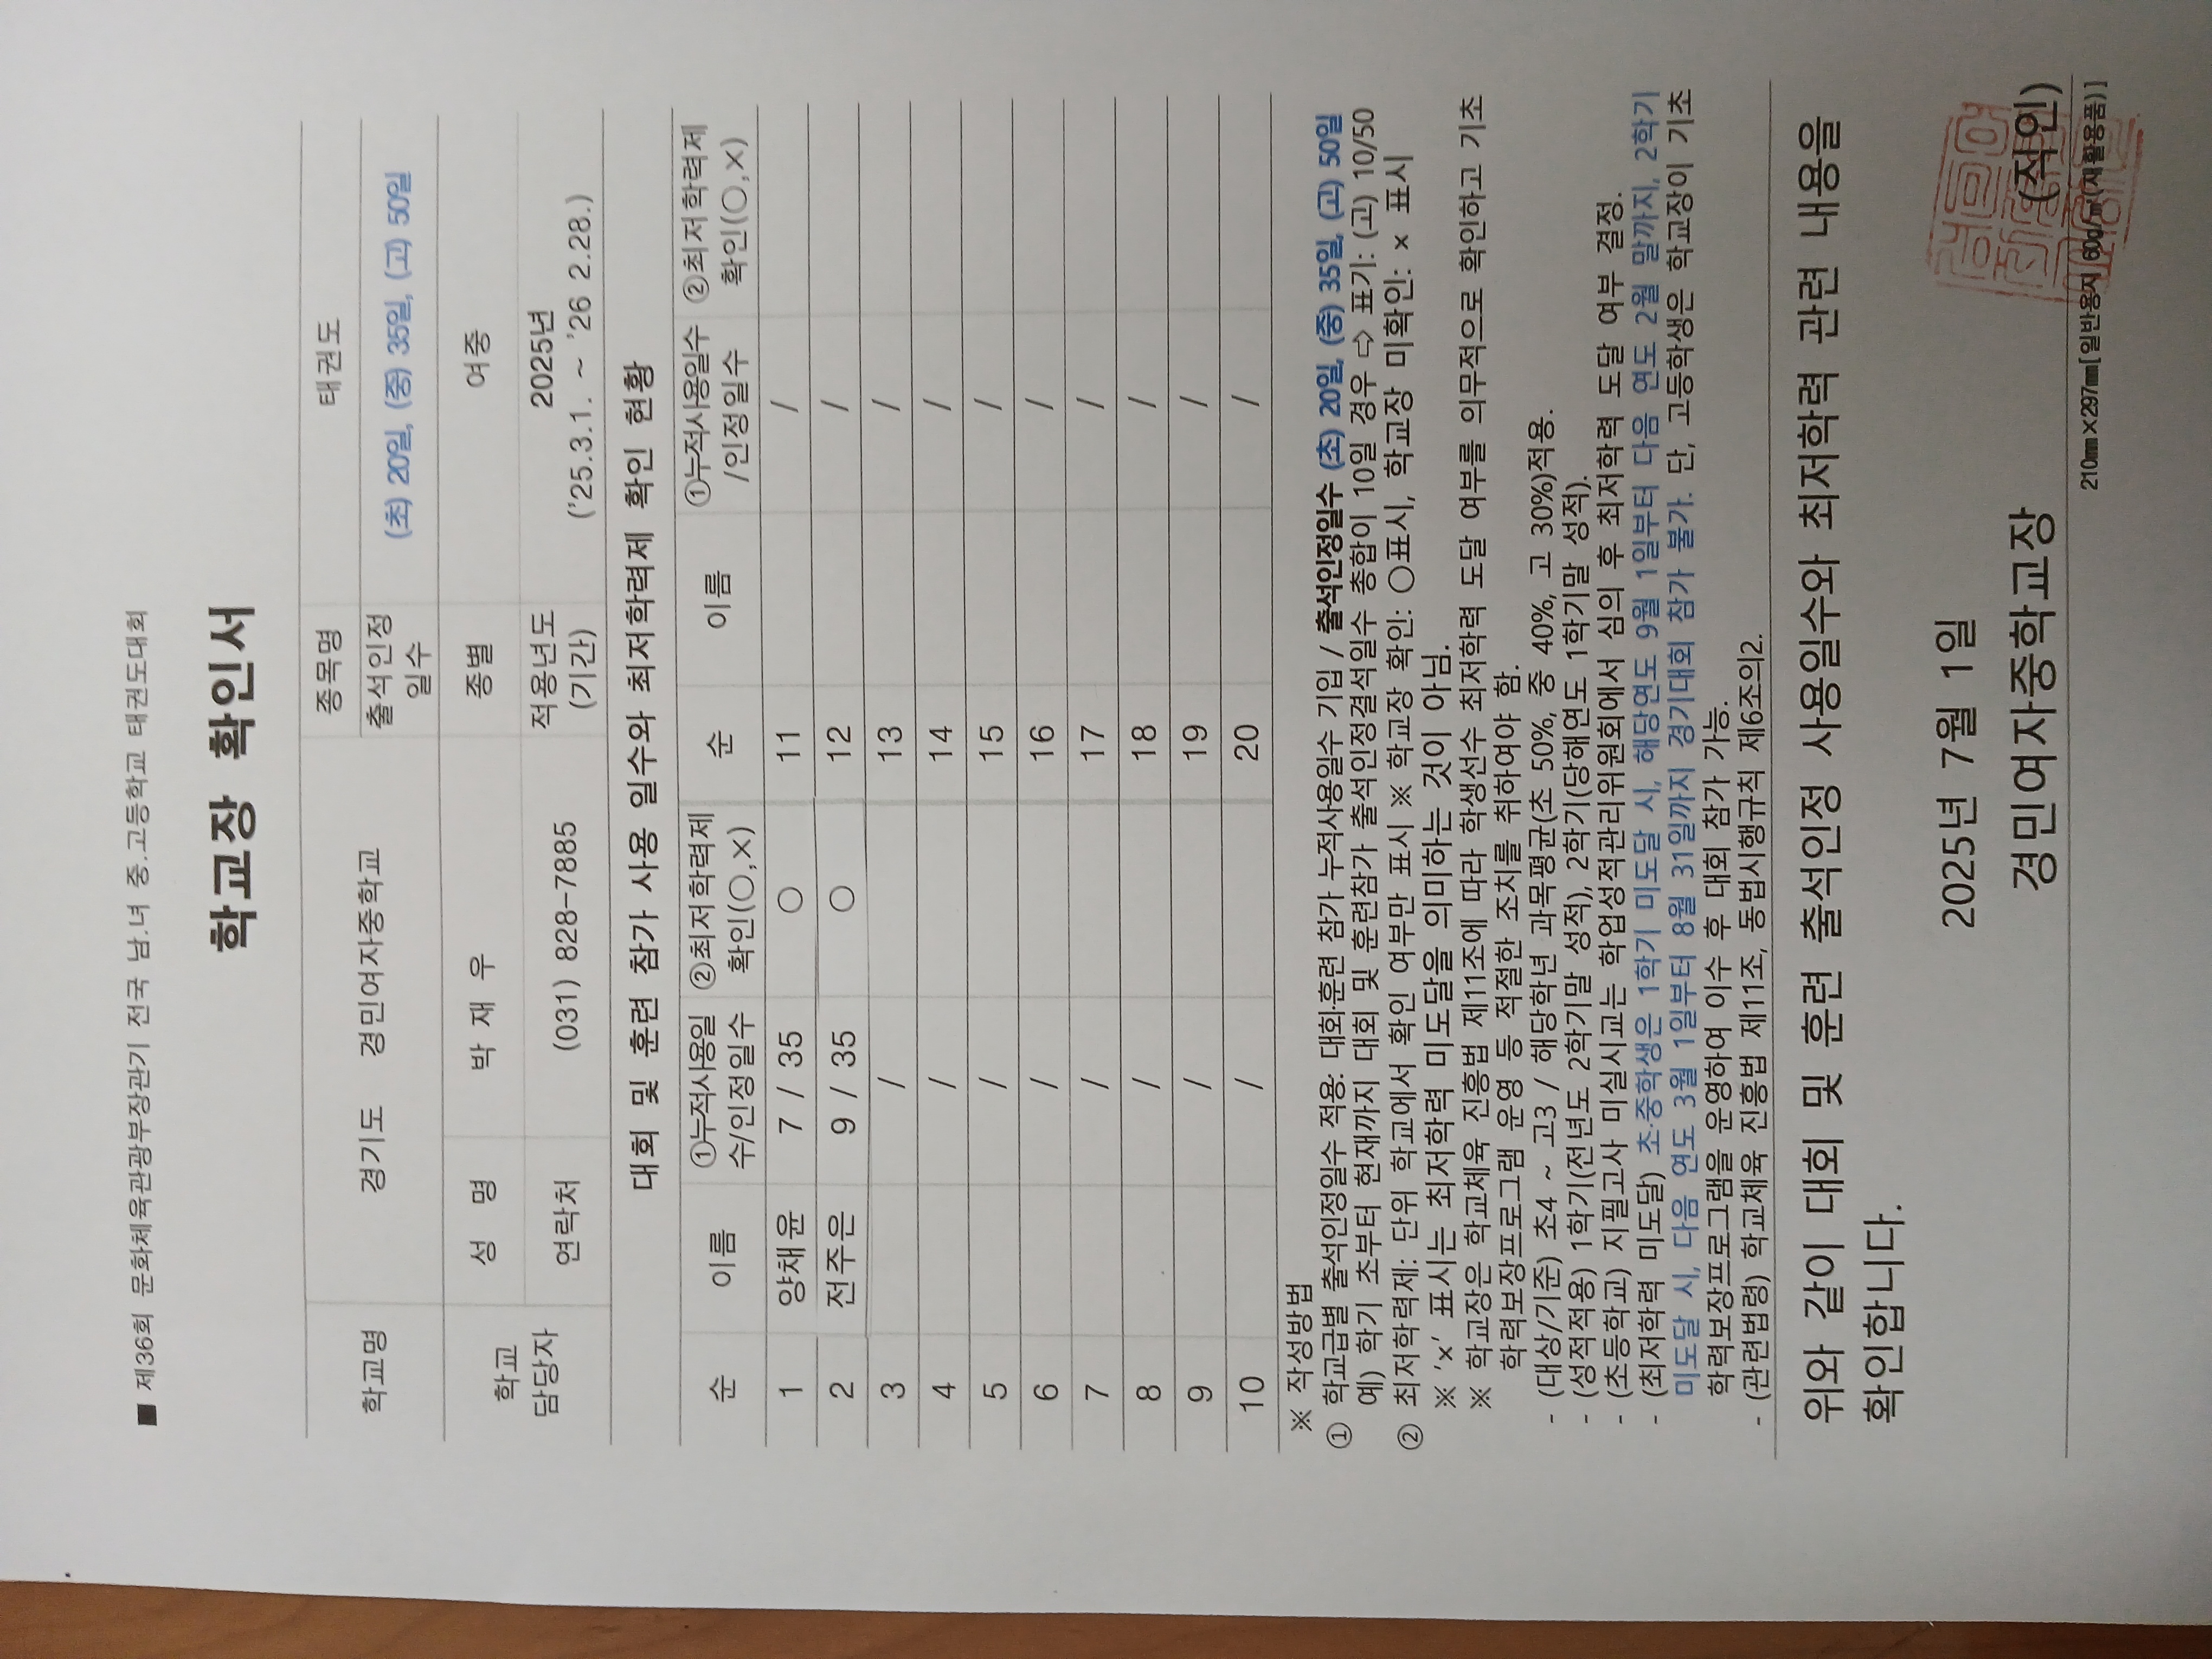 ■ 제36회 문화체육관광부장관기 전국 남.녀 중.고등학교 태권도대회
학교장 확인서
학교명 경기도 경민여자중학교 종목명 태권도
출석인정 일수 (초) 20일, (중) 35일, (고) 50일
학교 담당자 성 명 박 재 우 종별 여중
연락처 (031) 828-7885 적용년도 (기간) 2025년 ('25.3.1. ~ '26 2.28.)
대회 및 훈련 참가 사용 일수와 최저학력제 확인 현황
순 이름 ①누적사용일수/인정일수 ②최저학력제 확인(○,×) 순 이름 ①누적사용일수/인정일수 ②최저학력제 확인(○,×)
1 양채윤 7 / 35 ○ 11 /
2 전주은 9 / 35 ○ 12 /
3 / 13 /
4 / 14 /
5 / 15 /
6 / 16 /
7 / 17 /
8 / 18 /
9 / 19 /
10 / 20 /
※ 작성방법
① 학교급별 출석인정일수 적용: 대회·훈련 참가 누적사용일수 기입 / 출석인정일수 (초) 20일, (중) 35일, (고) 50일
예) 학기 초부터 현재까지 대회 및 훈련참가 출석인정결석일수 총합이 10일 경우 ⇨ 표기: (고) 10/50
② 최저학력제: 단위 학교에서 확인 여부만 표시 ※ 학교장 확인: ○표시, 학교장 미확인: × 표시
※ '×' 표시는 최저학력 미도달을 의미하는 것이 아님.
※ 학교장은 학교체육 진흥법 제11조에 따라 학생선수 최저학력 도달 여부를 의무적으로 확인하고 기초
학력보장프로그램 운영 등 적절한 조치를 취하여야 함.
- (대상/기준) 초4 ~ 고3 / 해당학년 과목평균(초 50%, 중 40%, 고 30%)적용.
- (성적적용) 1학기(전년도 2학기말 성적), 2학기(당해연도 1학기말 성적).
- (초등학교) 지필고사 미실시교는 학업성적관리위원회에서 심의 후 최저학력 도달 여부 결정.
- (최저학력 미도달) 초·중학생은 1학기 미도달 시, 해당연도 9월 1일부터 다음 연도 2월 말까지, 2학기
미도달 시, 다음 연도 3월 1일부터 8월 31일까지 경기대회 참가 불가. 단, 고등학생은 학교장이 기초
학력보장프로그램을 운영하여 이수 후 대회 참가 가능.
- (관련법령) 학교체육 진흥법 제11조, 동법시행규칙 제6조의2.
위와 같이 대회 및 훈련 출석인정 사용일수와 최저학력 관련 내용을
확인합니다.
2025년 7월 1일
경민여자중학교장 (직인)
210㎜×297㎜[일반용지 60g/㎡(재활용품)]